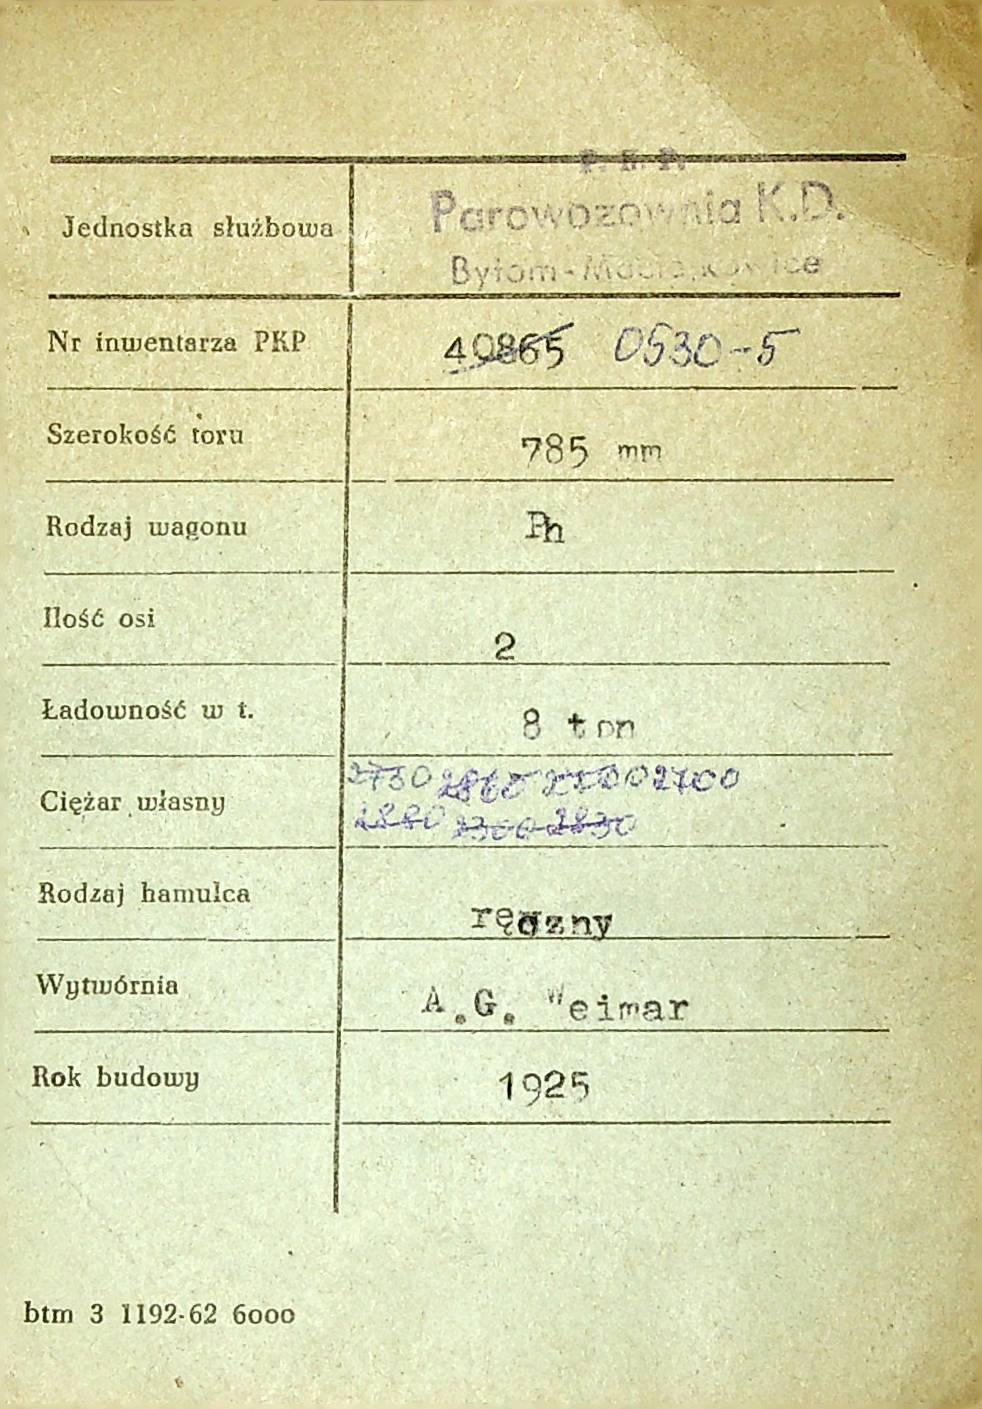 P. K. P.
Jednostka służbowa Parowozownia K.D.
Bytom-Maciejkowice
Nr inwentarza PKP 40865 0530-5
Szerokość toru 785 mm
Rodzaj wagonu Ph
Ilość osi 2
Ładowność w t. 8 ton
2750 2860 2700
Ciężar własny
2880 2300 2830
Rodzaj hamulca ręczny
Wytwórnia A.G. Weimar
Rok budowy 1925
btm 3 1192-62 6000